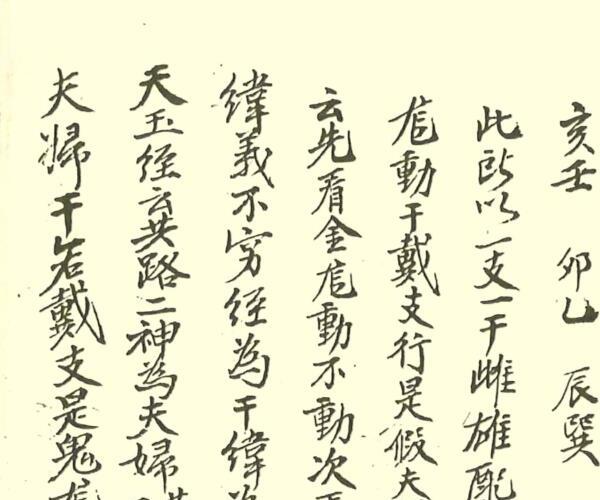 亥壬 卯乙 辰巽
此所以一支一干雌雄配
龙動干戴支行是假夫
云先看金龙動不動次
緯義不穷經為干緯
天玉經云共路二神為夫婦
夫婦干若戴支是鬼龙